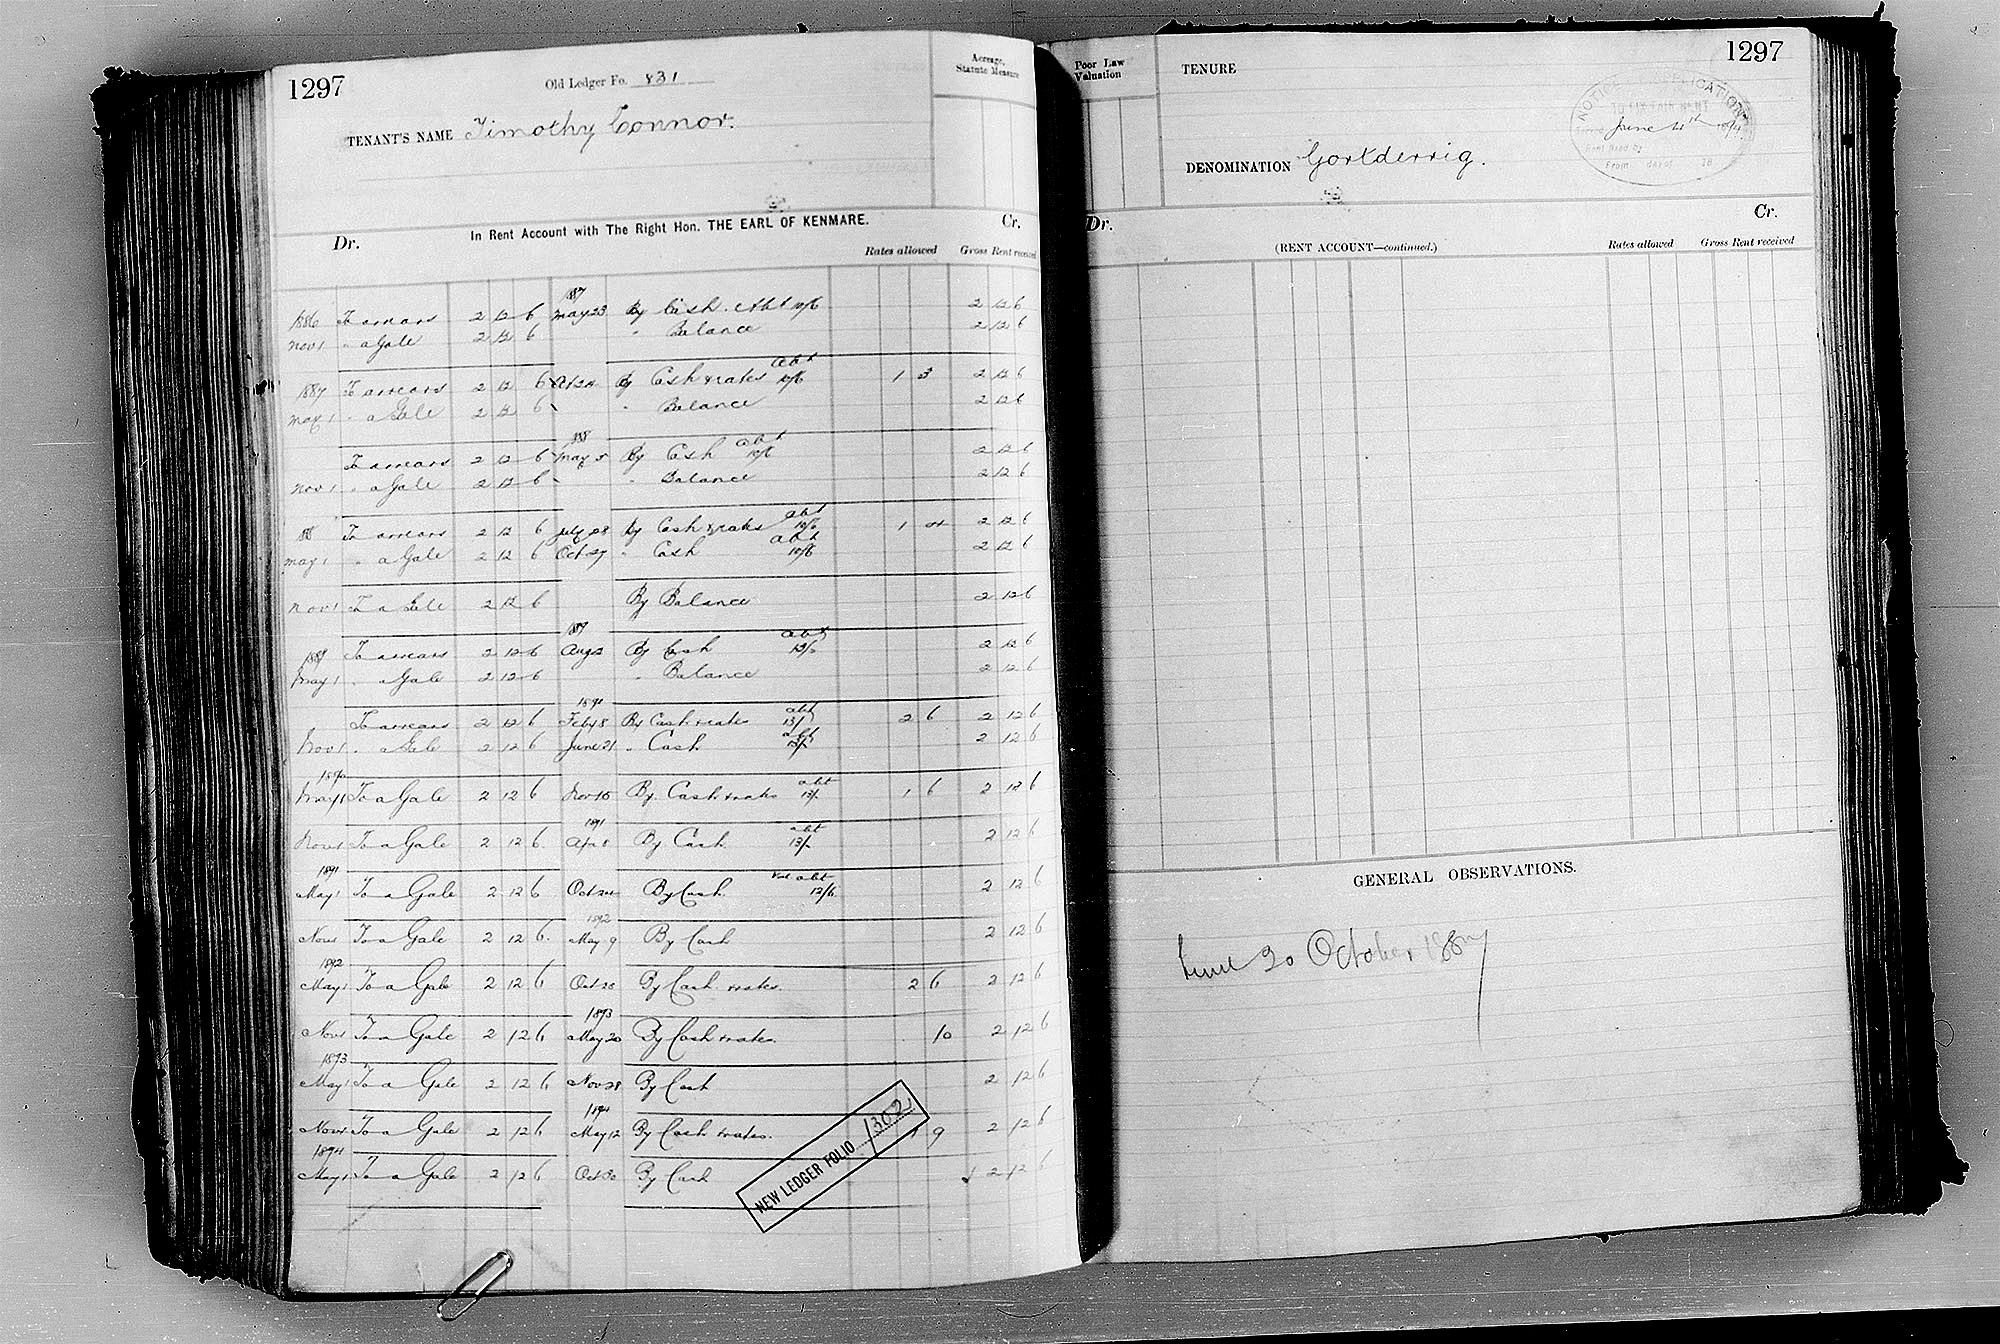 1297
Old Ledger Fo. 831
Acreage, Statute Measure
TENANT'S NAME Timothy Connor.
In Rent Account with The Right Hon. THE EARL OF KENMARE.
Dr. Cr.
Rates allowed Gross Rent received
1887
1886 To arrears 2 12 6 May 23 By Cash. Abt 10/6 2 12 6
Nov 1 " a Gale 2 12 6 " Balance 2 12 6
abt
1887 To arrears 2 12 6 By Cash & rates 10/6 1 3 2 12 6
May 1 " a Gale 2 12 6 " Balance 2 12 6
88 abt
To arrears 2 12 6 May 5 By Cash 10/6 2 12 6
Nov 1 " a Gale 2 12 6 " Balance 2 12 6
abt
88 To arrears 2 12 6 July 28 By Cash & rates 10/6 1 4 2 12 6
abt
May 1 " a Gale 2 12 6 Oct 27 " Cash 10/6 2 12 6
Nov 1 To a Gale 2 12 6 By Balance 2 12 6
1889 abt
1889 To arrears 2 12 6 Aug 2 By Cash 13/ 2 12 6
May 1 " a Gale 2 12 6 " Balance 2 12 6
1890 abt
To arrears 2 12 6 Feb 8 By Cash & rates 13/ 2 6 2 12 6
abt
Nov 1 " a Gale 2 12 6 June 21 " Cash 13/ 2 12 6
1890 abt
May 1 To a Gale 2 12 6 Nov 15 By Cash & rates 13/- 1 6 2 12 6
1891 abt
Nov 1 To a Gale 2 12 6 Apr 8 By Cash 13/- 2 12 6
1891 Vol abt
May 1 To a Gale 2 12 6 Oct 24 By Cash 12/6 2 12 6
1892
Nov 1 To a Gale 2 12 6 May 9 By Cash 2 12 6
1892
May 1 To a Gale 2 12 6 Oct By Cash & rates 2 6 2 12 6
1893
Nov 1 To a Gale 2 12 6 May 20 By Cash & rates 10 2 12 6
1893
May 1 To a Gale 2 12 6 Nov 28 By Cash 2 12 6
1894
Nov 1 To a Gale 2 12 6 May 12 By Cash & rates. 1 9 2 12 6
1894
May 1 To a Gale 2 12 6 Oct 30 By Cash 2 12 6
NEW LEDGER FOLIO 1302
Poor Law Valuation
TENURE
1297
NOTICE APPLICATION
TO FIX FAIR RENT
June 4th 1894
Rent fixed by
From day of 18
DENOMINATION Gortderrig.
Dr. Cr.
(RENT ACCOUNT—continued.)
Rates allowed Gross Rent received
GENERAL OBSERVATIONS.
20 October 1887